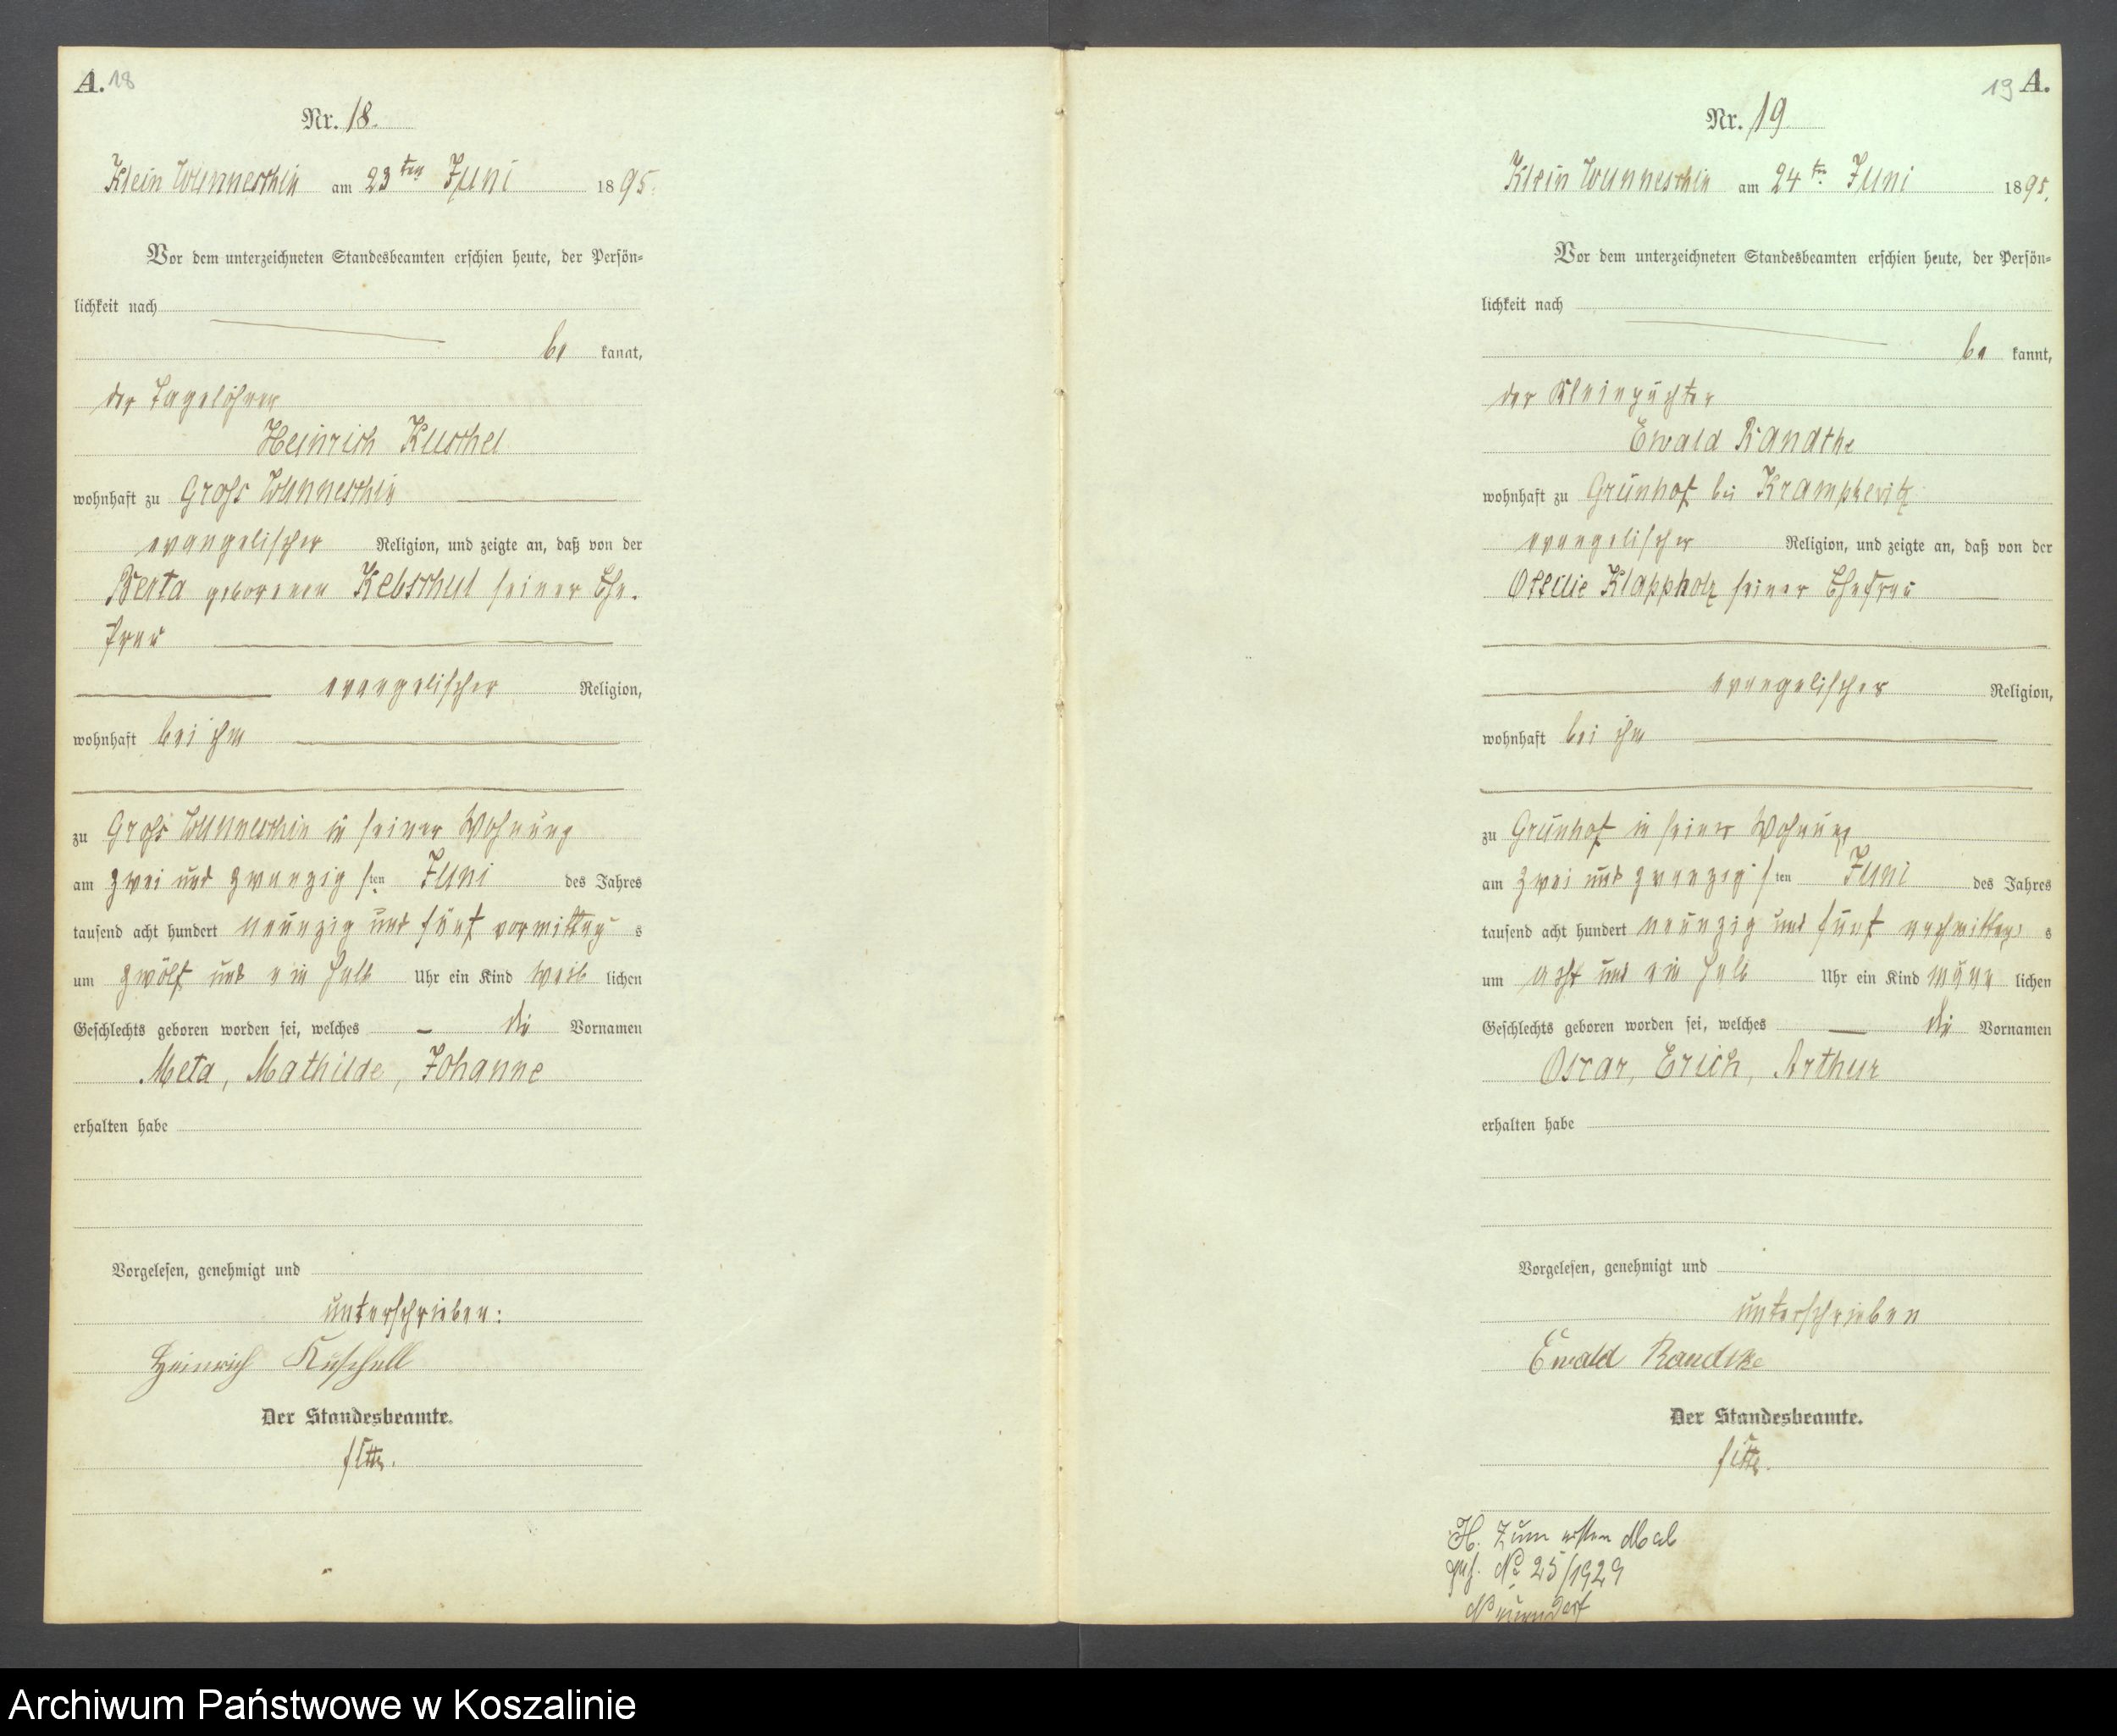 A. 18
Nr. 18.
Klein Wunneschin am 23ten Juni 1895.
Vor dem unterzeichneten Standesbeamten erschien heute, der Persön-
lichkeit nach
be kannt,
der Tagelöhner
Heinrich Kuschel
wohnhaft zu Groß Wunneschin
evangelischer Religion, und zeigte an, daß von der
Berta geborenen Kebschul seiner Ehe-
frau
evangelischer Religion,
wohnhaft bei ihm
zu Groß Wunneschin in seiner Wohnung
am zwei und zwanzigsten Juni des Jahres
tausend acht hundert neunzig und fünf vormittags
um zwölf und ein halb Uhr ein Kind weiblichen
Geschlechts geboren worden sei, welches – die Vornamen
Meta, Mathilde, Johanne
erhalten habe
Vorgelesen, genehmigt und
unterschrieben:
Heinrich Kuschell
Der Standesbeamte.
19 A.
Nr. 19
Klein Wunneschin am 24ten Juni 1895.
Vor dem unterzeichneten Standesbeamten erschien heute, der Persön-
lichkeit nach
be kannt,
der Kleinpächter
Ewald Randthe
wohnhaft zu Grünhof bei Krampkewitz
evangelischer Religion, und zeigte an, daß von der
Ottilie Klappholz seiner Ehefrau
evangelischer Religion,
wohnhaft bei ihm
zu Grünhof in seiner Wohnung
am zwei und zwanzigsten Juni des Jahres
tausend acht hundert neunzig und fünf nachmittags
um acht und ein halb Uhr ein Kind männlichen
Geschlechts geboren worden sei, welches – die Vornamen
Oscar, Erich, Arthur
erhalten habe
Vorgelesen, genehmigt und
unterschrieben
Ewald Randtke
Der Standesbeamte.
H. Zum ersten Mal
geh. No 25/1929
Archiwum Państwowe w Koszalinie